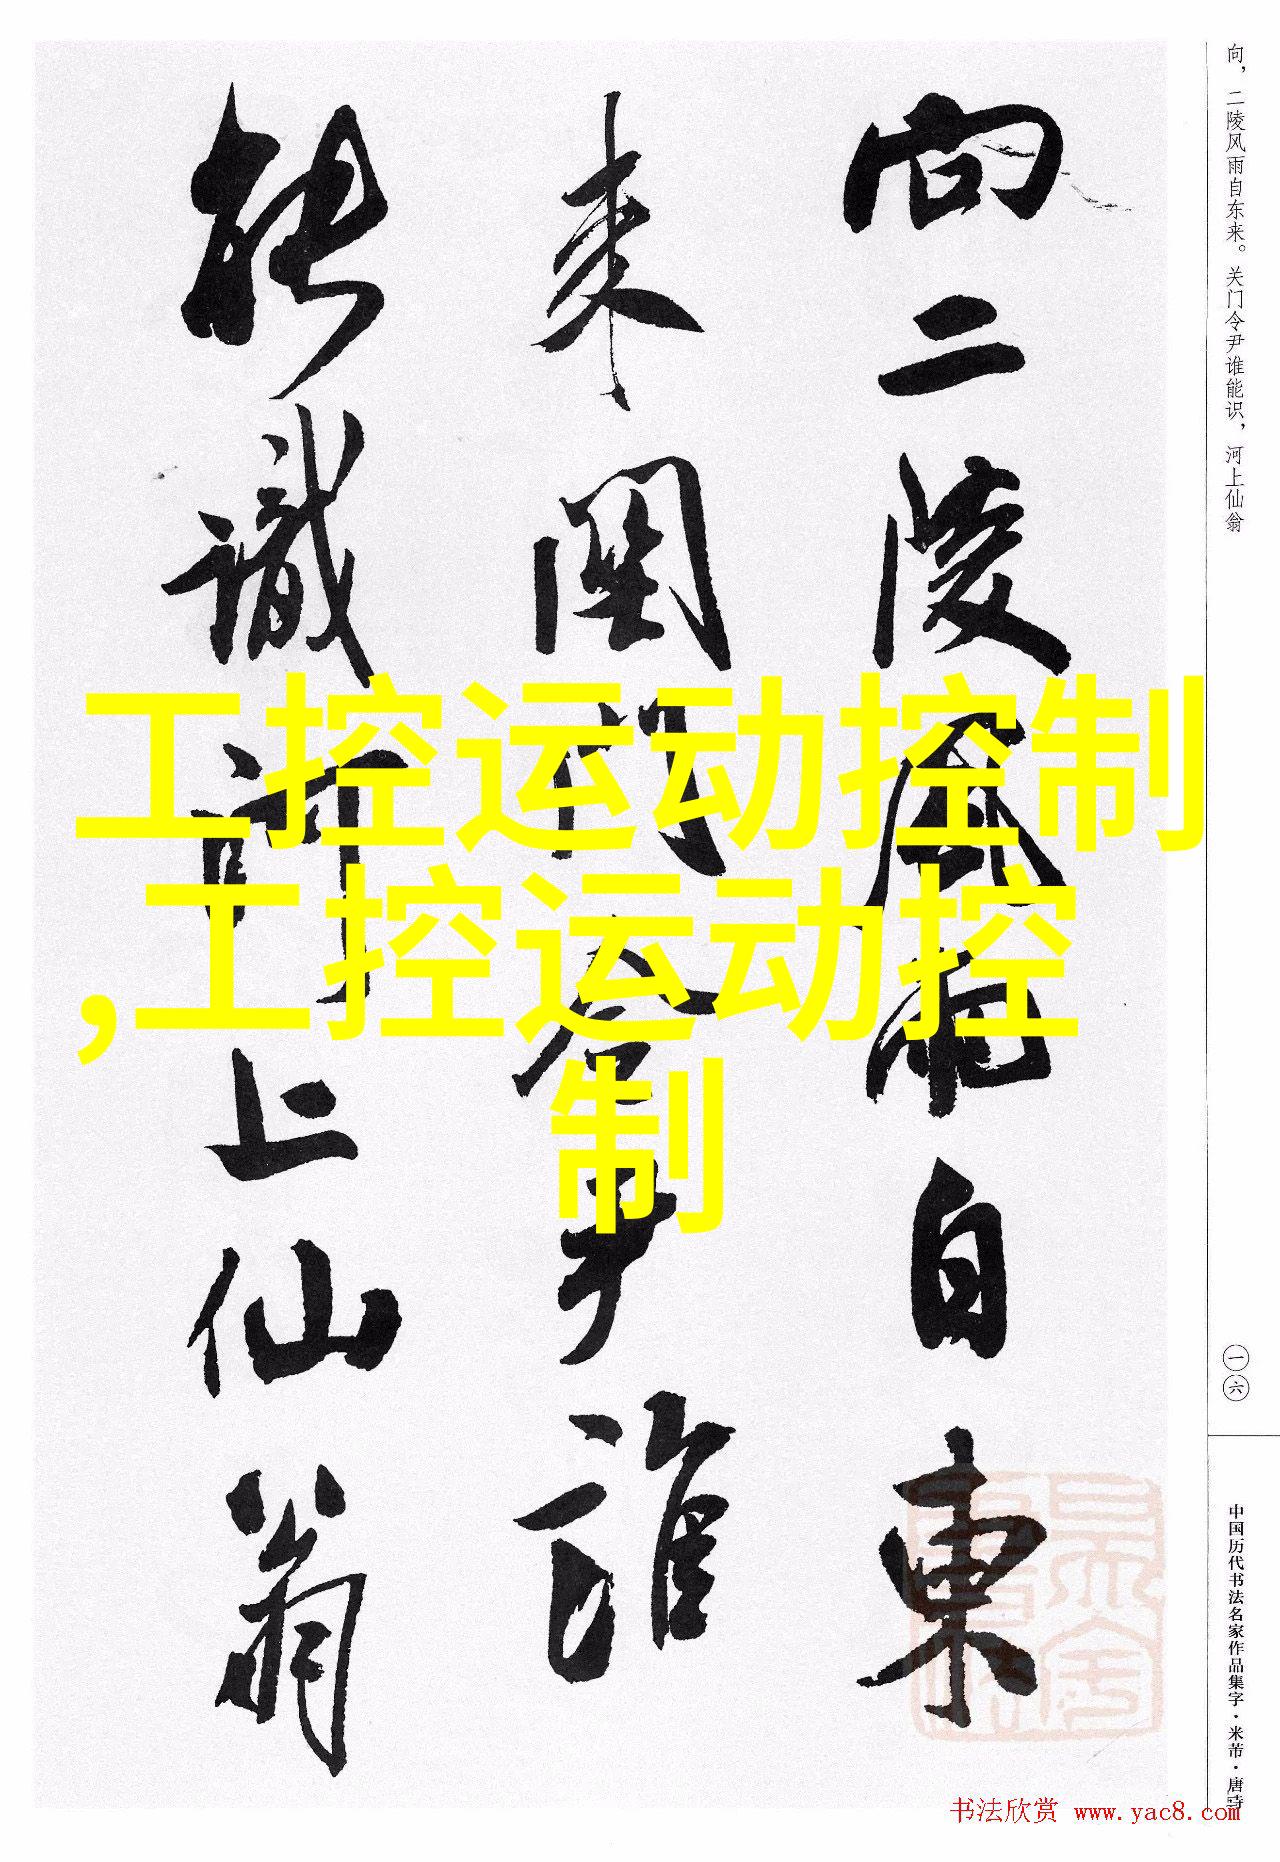 向，二陵风雨自东来。关门令尹谁能识，河上仙翁
向二陵風雨自東
来關門令尹誰
能識河上仙翁
工控运动控制
,工控运动控
制
一六
中国历代书法名家作品集字·米芾·唐诗
书法欣赏 www.yac8.com